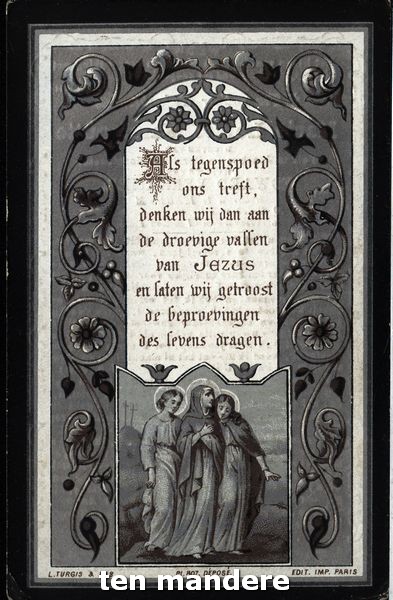 Als tegenspoed
ons treft,
denken wij dan aan
de droevige vallen
van JEZUS
en laten wij getroost
de beproevingen
des levens dragen.
L. TURGIS &
DÉPOSÉ
EDIT. IMP. PARIS
ten mandere